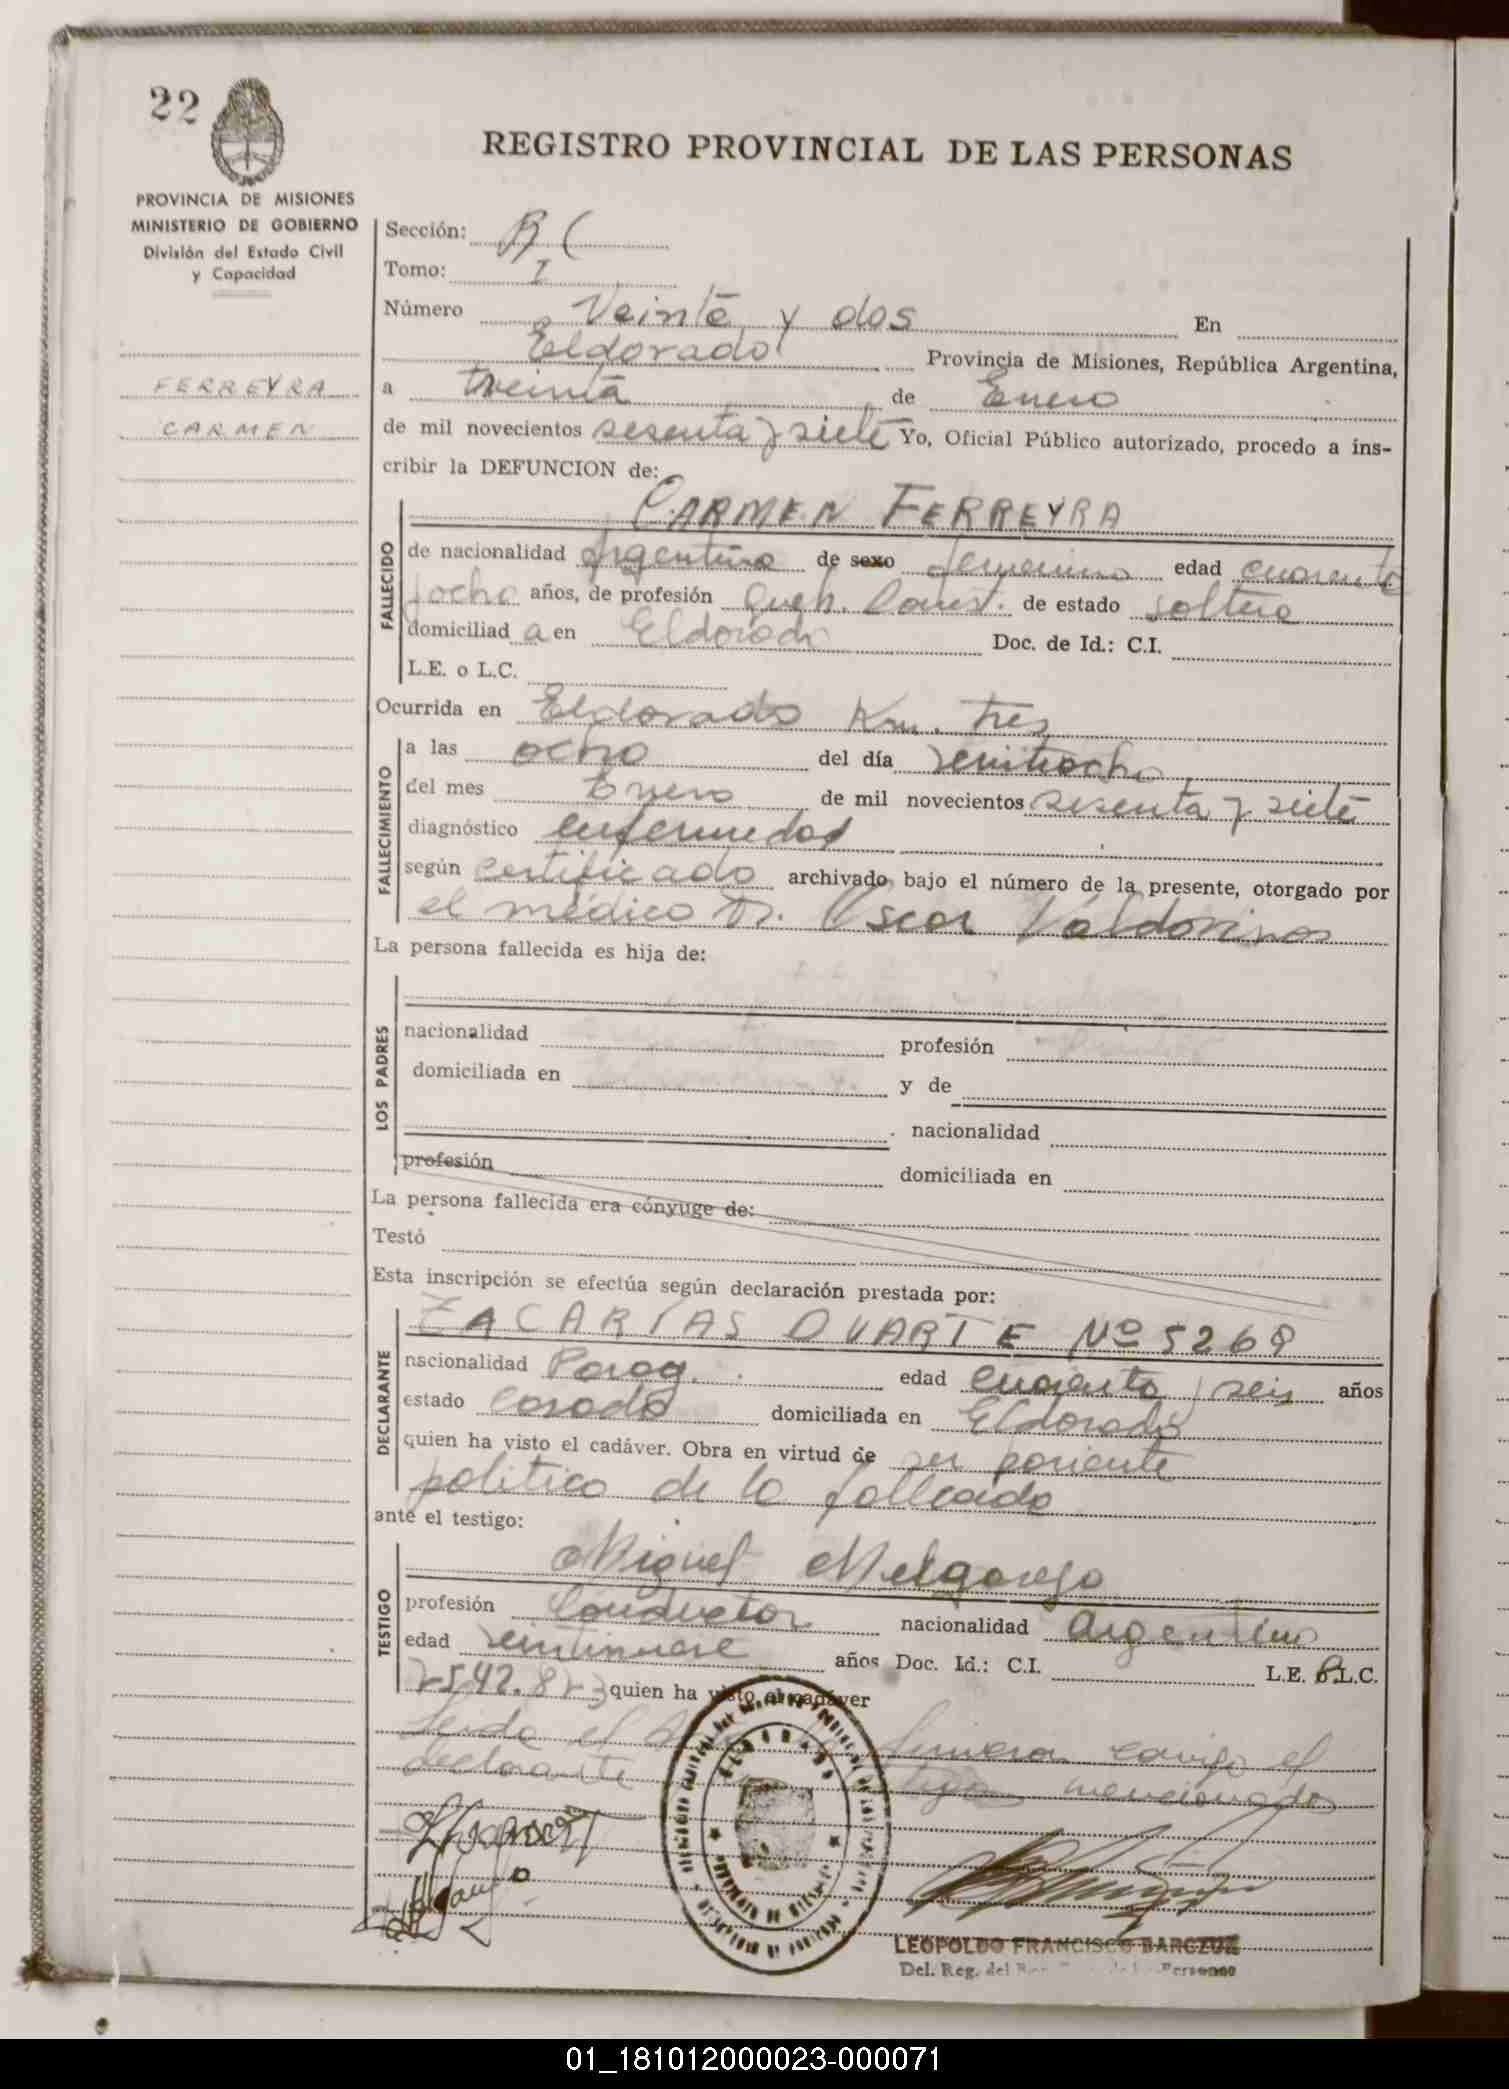 22
REGISTRO PROVINCIAL DE LAS PERSONAS
PROVINCIA DE MISIONES
MINISTERIO DE GOBIERNO
División del Estado Civil
y Capacidad
FERREYRA
CARMEN
Sección:
Tomo: I
Número Veinte y dos En
Eldorado Provincia de Misiones, República Argentina,
a treinta de Enero
de mil novecientos sesenta y siete Yo, Oficial Público autorizado, procedo a ins-
cribir la DEFUNCION de:
CARMEN FERREYRA
FALLECIDO
de nacionalidad Argentina de sexo femenino edad cuarenta
y ocho años, de profesión Queh. Domest. de estado soltera
domiciliad a en Eldorado Doc. de Id.: C.I.
L.E. o L.C.
Ocurrida en Eldorado Km. tres
FALLECIMIENTO
a las ocho del día veintiocho
del mes Enero de mil novecientos sesenta y siete
diagnóstico enfermedad
según certificado archivado bajo el número de la presente, otorgado por
el médico Dr. Oscar Valdovinos
La persona fallecida es hija de:
LOS PADRES
nacionalidad profesión
domiciliada en y de
nacionalidad
profesión domiciliada en
La persona fallecida era cónyuge de:
Testó
Esta inscripción se efectúa según declaración prestada por:
DECLARANTE
ZACARIAS DUARTE Nº 5268
nacionalidad Parag. edad cuarenta y seis años
estado casado domiciliada en Eldorado
quien ha visto el cadáver. Obra en virtud de ser pariente
politico de la fallecida
ante el testigo:
TESTIGO
Miguel Melgarejo
profesión Conductor nacionalidad Argentino
edad veintinueve años Doc. Id.: C.I. L.E. o L.C.
7.542.823 quien ha visto el cadáver
Leida el firmaron conmigo el
declarante mencionados
ELDORADO
PROVINCIA DE MISIONES
LEOPOLDO FRANCISCO BARCZUK
Del. Reg. del Personas
01_181012000023-000071